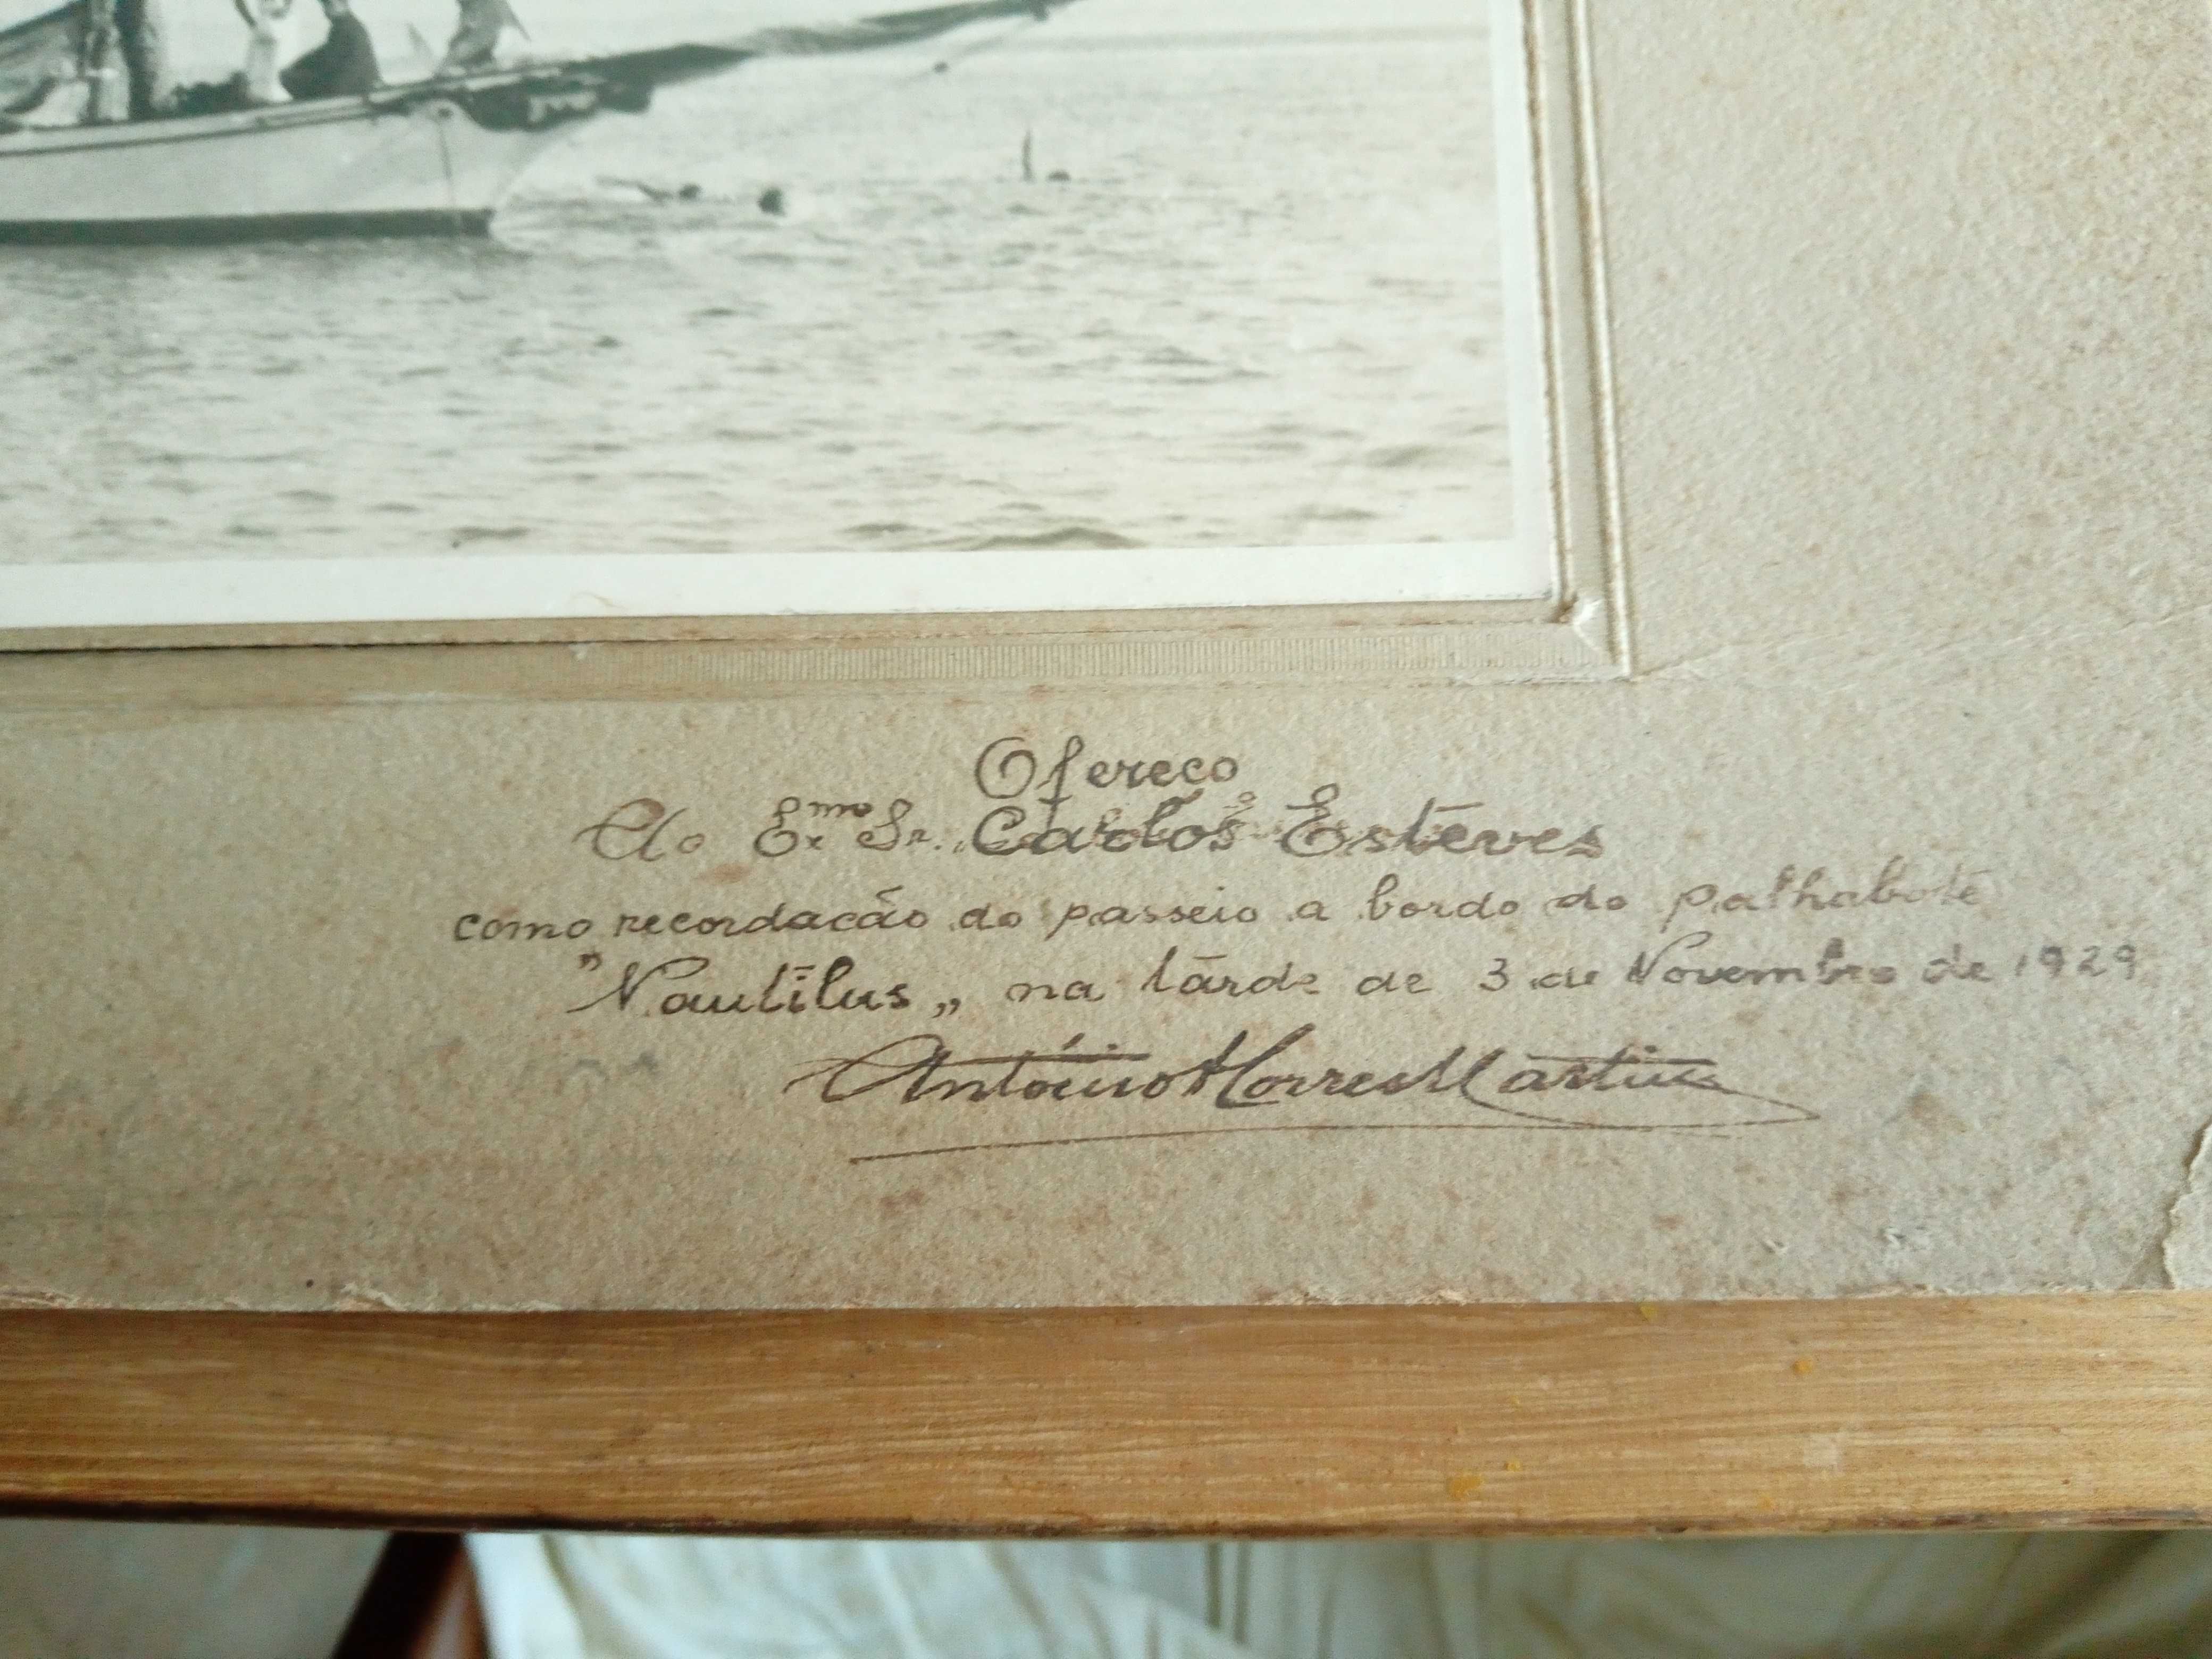 Ofereço
Ao Exmo Sr. Carlos Esteves
como recordação do passeio a bordo do palhabote
"Nautilus" na tarde de 3 de Novembro de 1929
António Martins